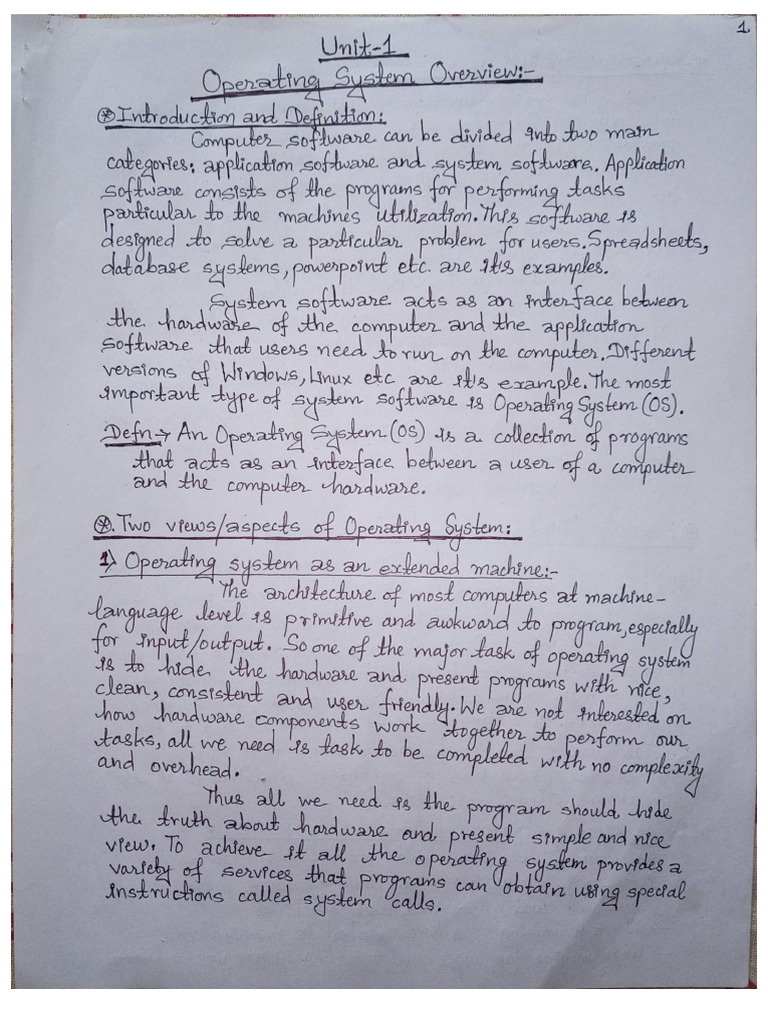 1.
Unit-1
Operating System Overview:-
⊛ Introduction and Definition:
Computer software can be divided into two main
categories: application software and system software. Application
software consists of the programs for performing tasks
particular to the machines utilization. This software is
designed to solve a particular problem for users. Spreadsheets,
database systems, powerpoint etc. are it's examples.
System software acts as an interface between
the hardware of the computer and the application
software that users need to run on the computer. Different
versions of Windows, Linux etc are it's example. The most
important type of system software is Operating System (OS).
Defn:→ An Operating System (OS) is a collection of programs
that acts as an interface between a user of a computer
and the computer hardware.
⊛. Two views/aspects of Operating System:
1) Operating system as an extended machine:-
The architecture of most computers at machine-
language level is primitive and awkward to program, especially
for input/output. So one of the major task of operating system
is to hide the hardware and present programs with nice,
clean, consistent and user friendly. We are not interested on
how hardware components work together to perform our
tasks, all we need is task to be completed with no complexity
and overhead.
Thus all we need is the program should hide
the truth about hardware and present simple and nice
view. To achieve it all the operating system provides a
variety of services that programs can obtain using special
instructions called system calls.